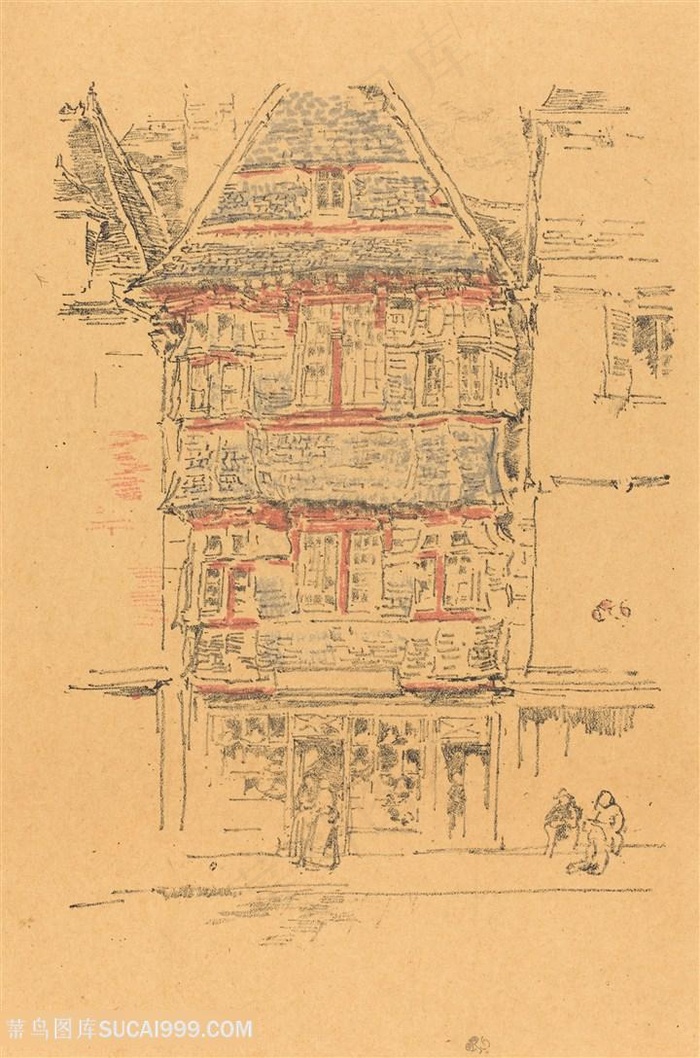 库
菜鸟图库SUCAI999.COM